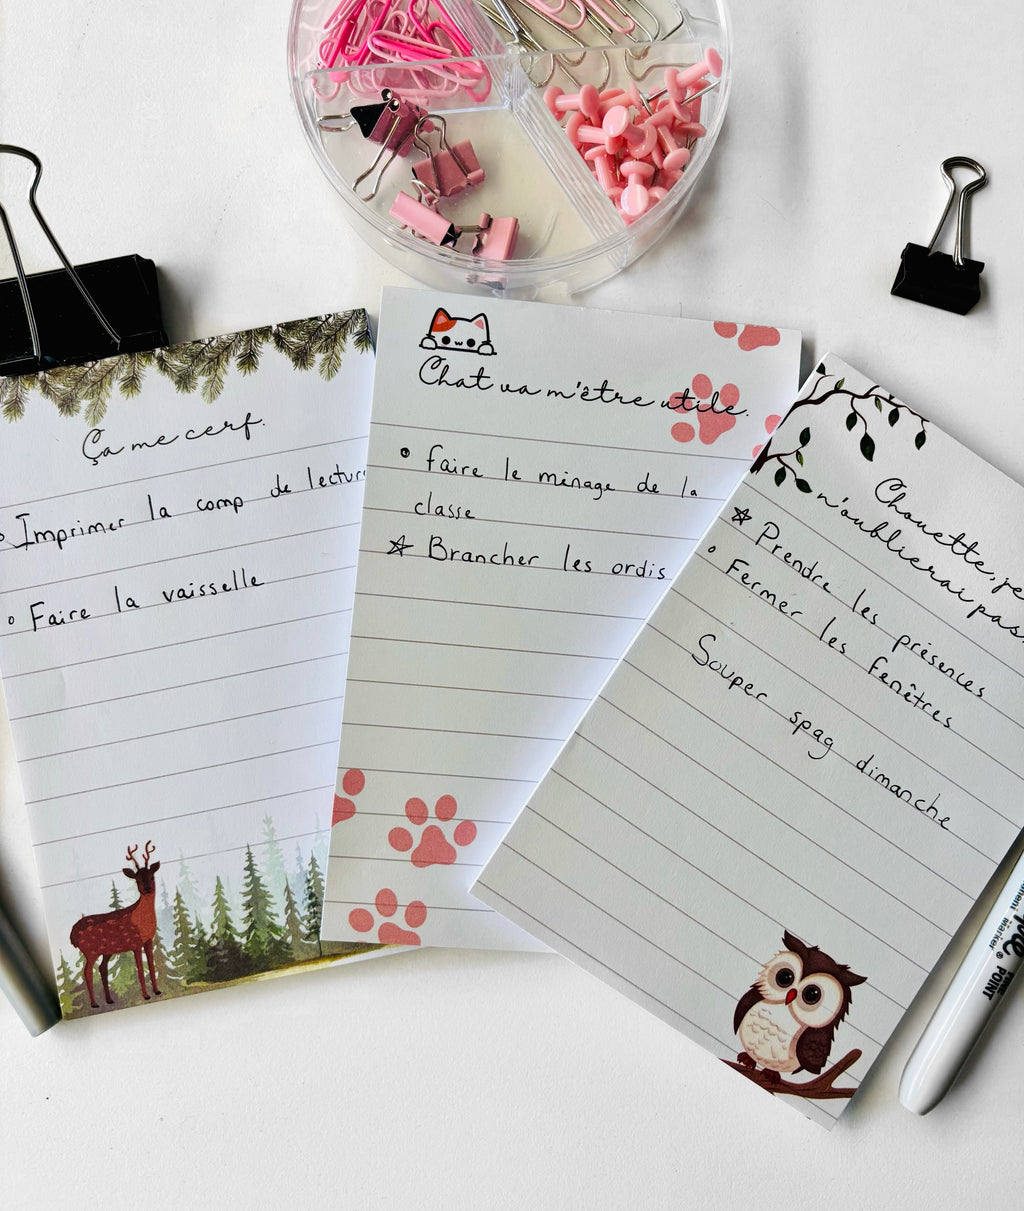 Ça me cerf.
Imprimer la comp de lecture
Faire la vaisselle
Chat va m'être utile.
faire le ménage de la
classe
Brancher les ordis
Chouette, je
n'oublierai pas
Prendre les présences
Fermer les fenêtres
Souper spag dimanche
Marker®
POINT